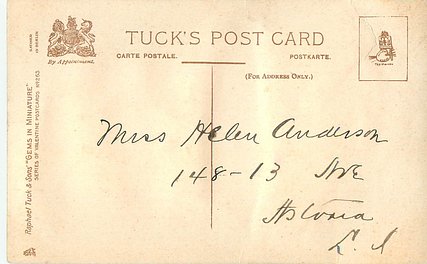 TUCK'S POST CARD
CARTE POSTALE. POSTKARTE.
(FOR ADDRESS ONLY.)
By Appointment.
Raphael Tuck & Sons' "GEMS IN MINIATURE"
SERIES OF VALENTINE POSTCARDS Nº 253.
Miss Helen Anderson
148-13 AVE
Astoria
L. I